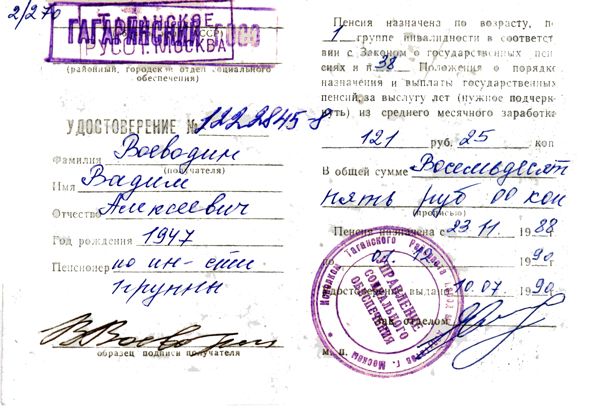 2/270
ТАГАНСКОЕ
ГАГАРИНСКИЙ
РУСО г. МОСКВА
(районный, городской отдел социального
обеспечения)
УДОСТОВЕРЕНИЕ № 1222845-8
Фамилия Воеводин
(получателя)
Имя Вадим
Отчество Алексеевич
Год рождения 1947
Пенсионер по ин-сти
группы
В Воеводин
образец подписи получателя
Пенсия назначена по возрасту, по
1 группе инвалидности в соответст
вии с Законом о государственных пен
сиях и п. 38 Положения о порядке
назначения и выплаты государственных
пенсий, за выслугу лет (нужное подчерк-
нуть) из среднего месячного заработка
121 руб. 25 коп
В общей сумме Восемьдесят
пять руб 00 коп
(прописью)
Пенсия назначена с 23 11 1988
по 01. 12 1990
удостоверение выдано 10.07 1990
Зав. отделом
М. П.
УПРАВЛЕНИЕ
СОЦИАЛЬНОГО
ОБЕСПЕЧЕНИЯ
Исполком Таганского районного
г. Москвы